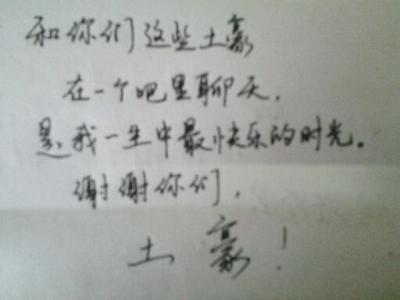 和你们这些土豪
在一个吧里聊天，
是我一生中最快乐的时光。
谢谢你们，
土豪！